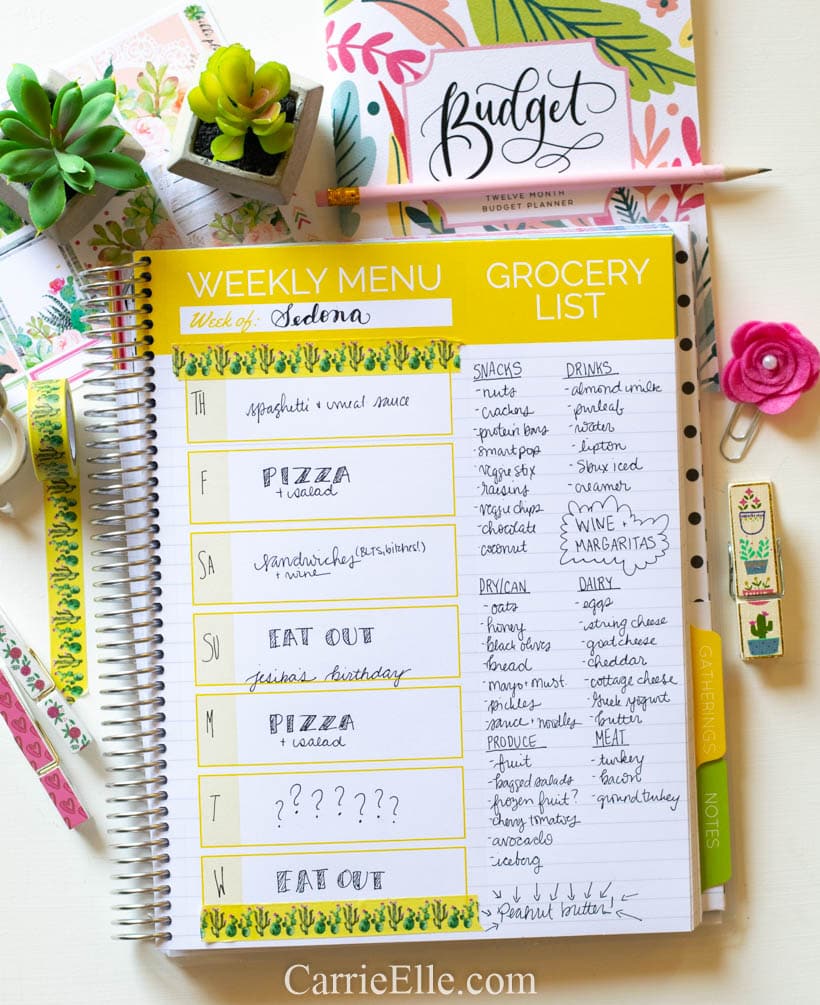 Budget
TWELVE MONTH
BUDGET PLANNER
WEEKLY MENU
Week of: Sedona
TH
spaghetti + meal sauce
F
PIZZA
+ salad
SA
sandwiches (BLTS, bitches!)
+ wine
SU
EAT OUT
jesika's birthday
M
PIZZA
+ salad
T
???????
W
EAT OUT
GROCERY
LIST
SNACKS
-nuts
-crackers
-protein bars
-smart pop
-veggie stix
-raisins
-veggie chips
-chocolate
-coconut
DRINKS
-almond milk
-pureleaf
-water
-lipton
-Sbux iced
-creamer
WINE +
MARGARITAS
DRY/CAN
-oats
-honey
-black olives
-bread
-mayo + must
-pickles
-sauce + noodles
DAIRY
-eggs
-string cheese
-goat cheese
-cheddar
-cottage cheese
-Greek yogurt
-butter
PRODUCE
-fruit
-bagged salads
-frozen fruit?
-cherry tomatoes
-avocado
-iceberg
MEAT
-turkey
-bacon
-ground turkey
Peanut butter!
GATHERINGS
NOTES
CarrieElle.com